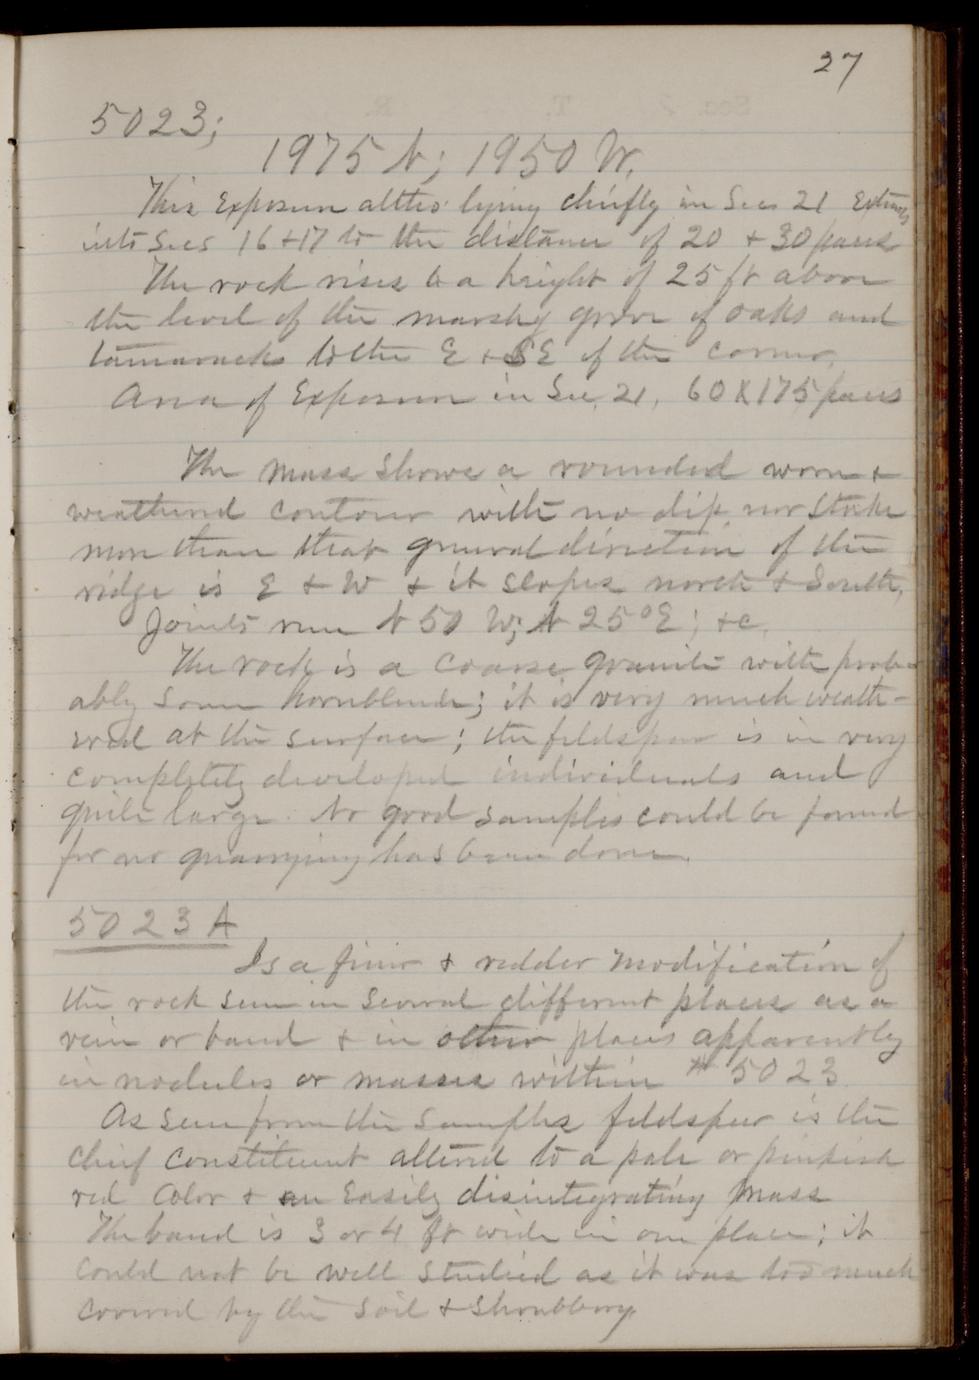 27
5023;
1975 N; 1950 W.
This Exposure altho' lying chiefly in Sec 21 Extends
into Secs 16 + 17 to the distance of 20 + 30 paces
The rock rises to a height of 25 ft above
the level of the marshy grove of oaks and
tamaracks to the E + SE of the corner.
Area of Exposure in Sec. 21, 60 X 175 paces
The mass shows a rounded worn +
weathered contour with no dip nor strike
more than that general direction of the
ridge is E + W + it slopes north + South,
Joints run N 50 W; N 25° E; +c.
The rock is a coarse granite with prob-
ably some hornblende; it is very much weath-
ered at the surface; the feldspar is in very
completely developed individuals and
quite large. No good samples could be found
for no quarrying has been done.
5023 A
Is a finer + redder modification of
the rock seen in several different places as a
vein or band + in other places apparently
in nodules or masses within # 5023
As seen from the samples feldspar is the
chief constituent altered to a pale or pinkish
red color + an Easily disintegrating mass
The band is 3 or 4 ft wide in one place; it
could not be well studied as it was too much
covered by the soil + shrubbery